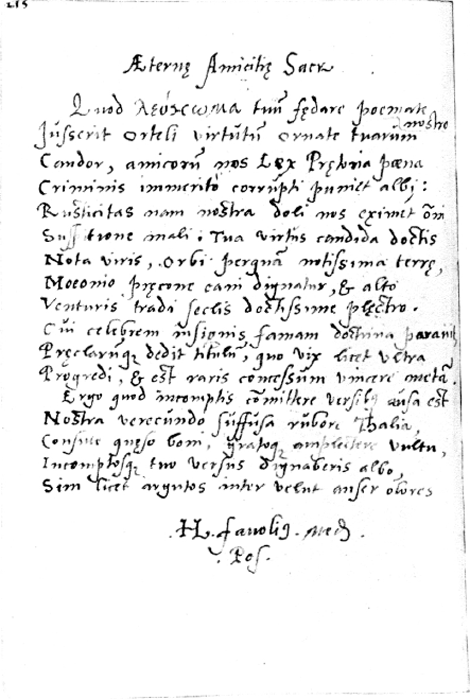 215
Æternę Amicitię Sacr
Quod λεύκωμα tuū fędare poemate nostro
Jusserit Orteli virtutū ornate tuarum
Candor, amicorū nos Lex Prętoria pœna
Criminis immerito corrupti puniet albj:
Rusticitas nam nostra doli nos eximet om̄i
Suspitione mali. Tua virtus candida doctis
Nota viris, orbi perquā notissima terrę,
Mœonio pręcone cani dignatur, & alto
Venturis tradi seclis doctissime plectro.
Cui celebrem insignis famam doctrina
Pręclarūq; dedit titulū, quo vix licet vltra
Progredi, & est raris concessum vincere metā.
Ergo quod incomptis cōmittere versibꝫ ausa est
Nostra verecundo suffusa rubore Thalia,
Consule quęso boni, gratoq; amplectere vultu,
Incomptosq; tuo versus dignaberis albo,
Sim licet argutos inter velut anser olores
.H. favoli9. Med.
. Pos.